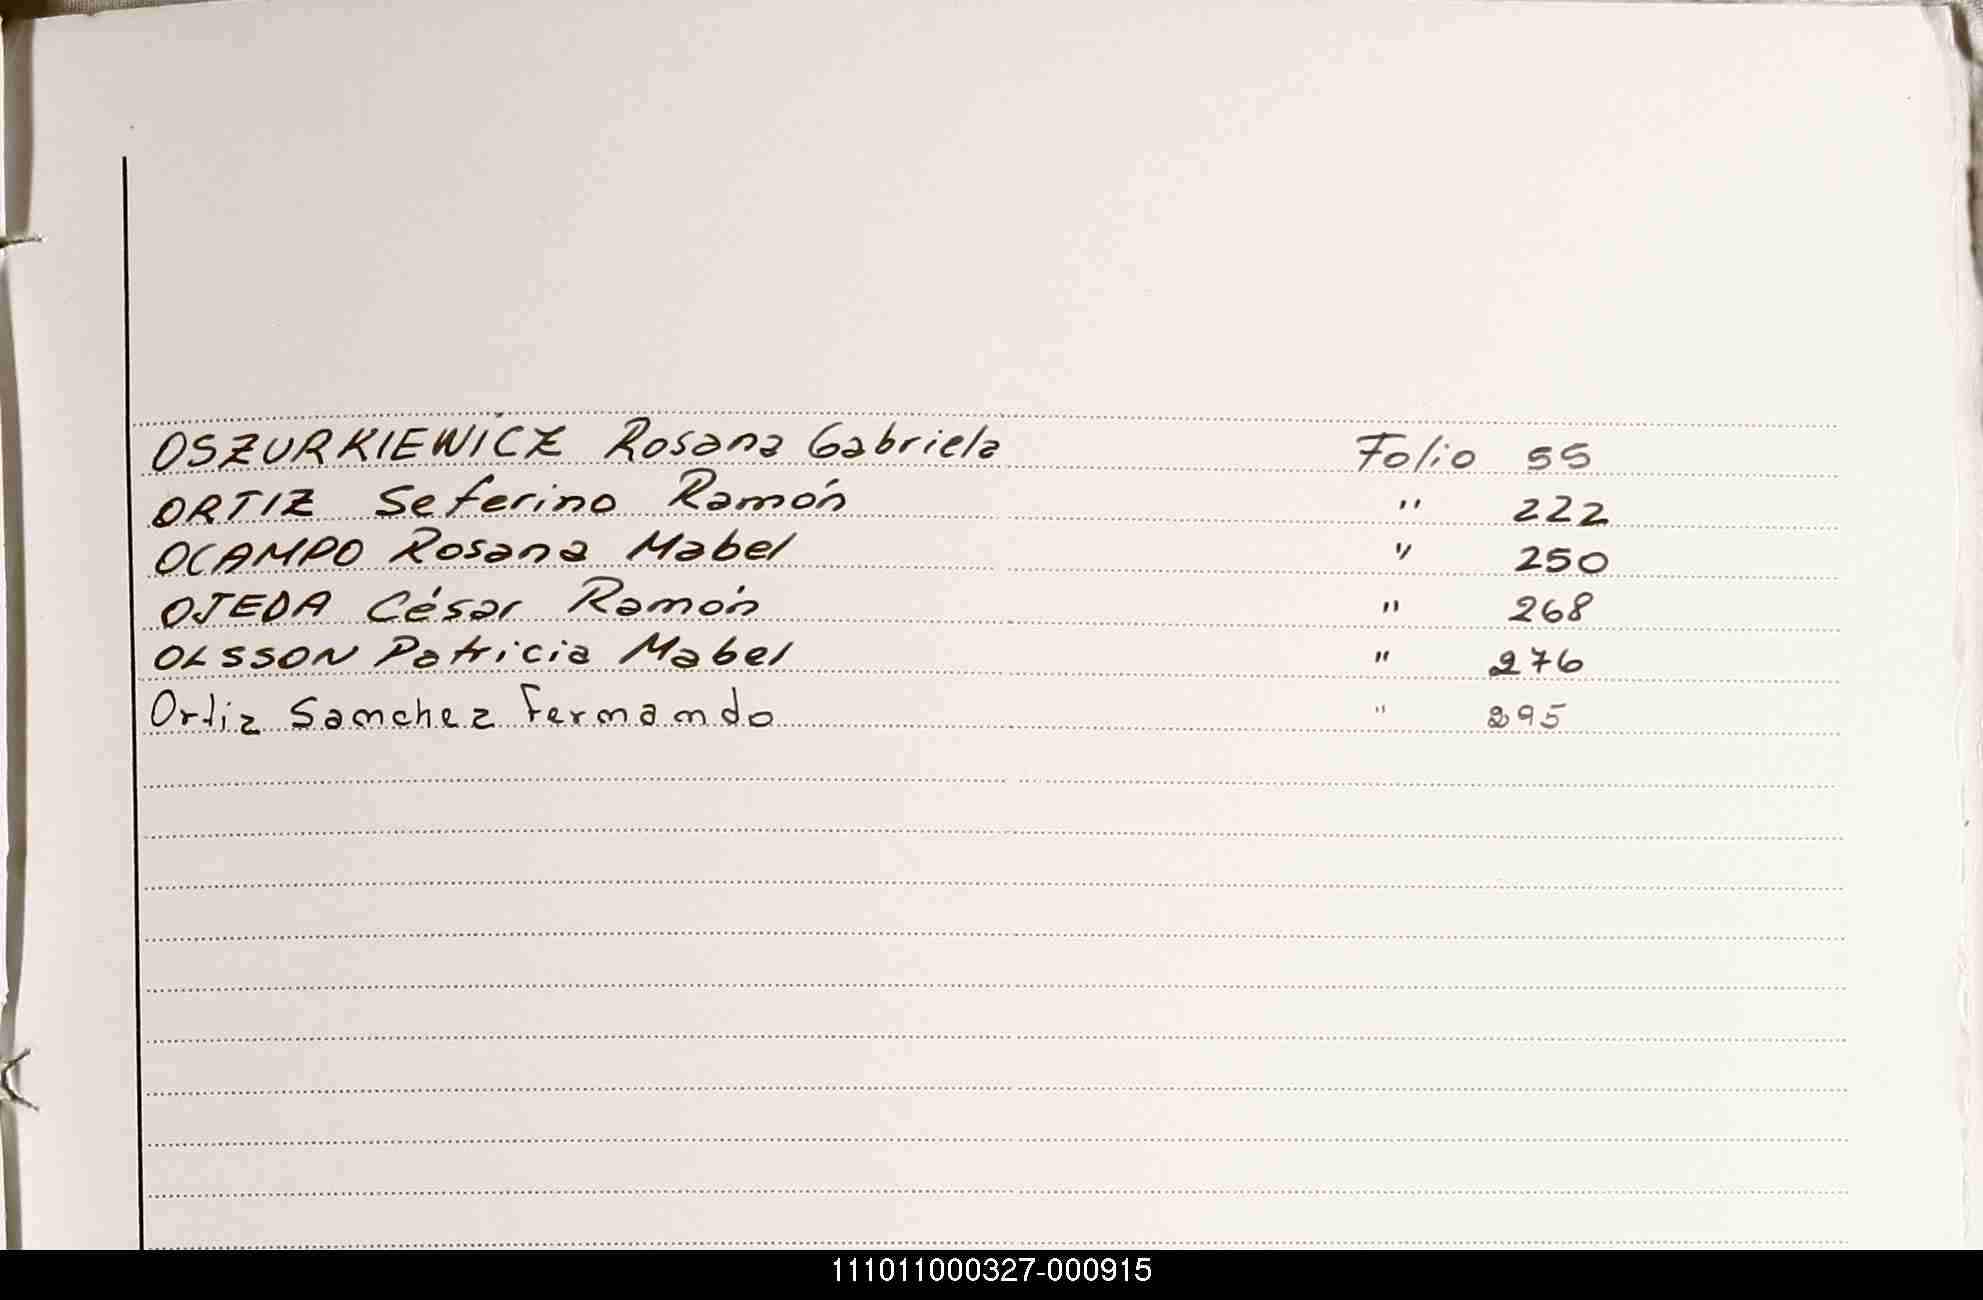 OSZURKIEWICZ Rosana Gabriela Folio 55
ORTIZ Seferino Ramón " 222
OCAMPO Rosana Mabel " 250
OJEDA César Ramón " 268
OLSSON Patricia Mabel " 276
Ortiz Sanchez Fernando " 295
111011000327-000915